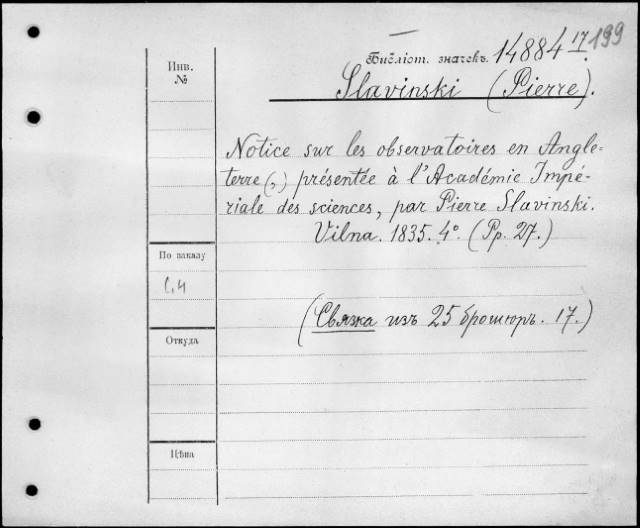 199
Библіот. значекъ. 14884 17.
Инв.
№
Slavinski (Pierre).
Notice sur les observatoires en Angle=
terre (,) présentée à l'Académie Impé-
riale des sciences, par Pierre Slavinski.
Vilna. 1835. 4º. (Pp. 27.)
По заказу
(Связка изъ 25 брошюръ. 17.)
Откуда
Цѣна